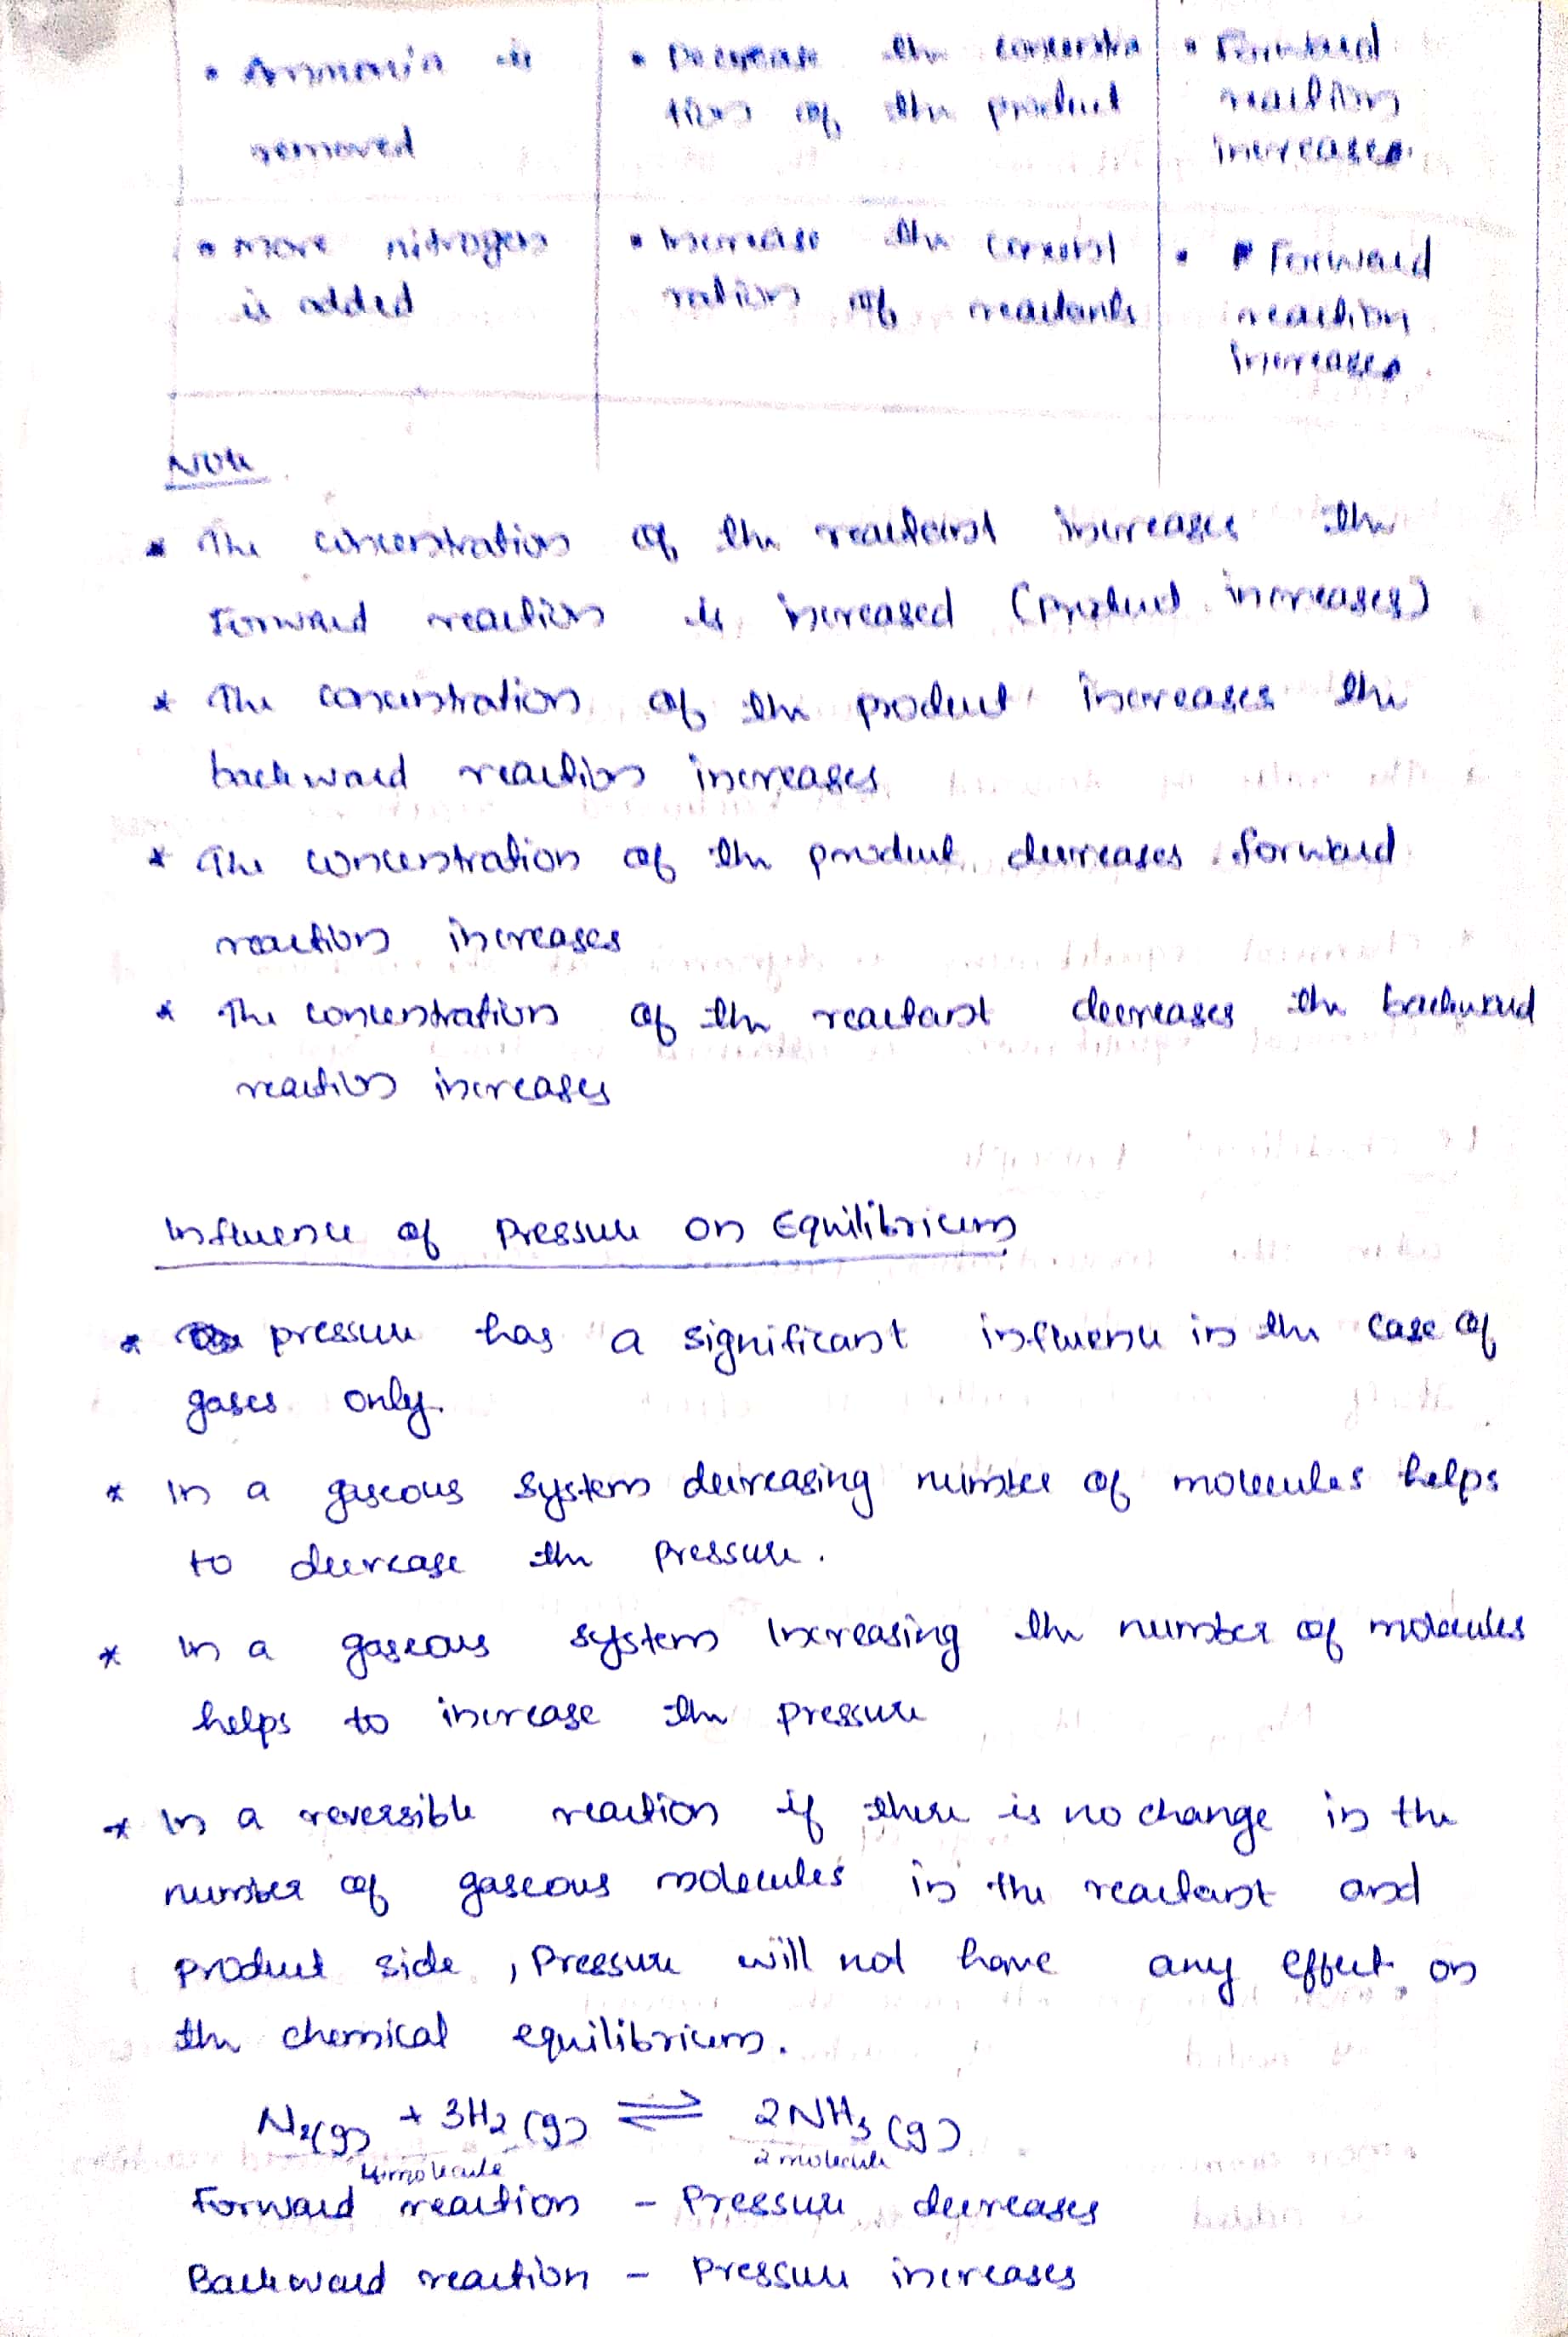 • Ammonia is
removed
• Decrease the concentra
tion of the product
• Forward
reaction
increases.
• more nitrogen
is added
• Increase the concent
ration of reactants
• Forward
reaction
increases.
Note
* The concentration of the reactant increases the
Forward reaction is increased (product increases)
* The concentration of the product increases the
backward reaction increases
* The concentration of the product decreases forward
reaction increases
* The concentration of the reactant decreases the backward
reaction increases
Influence of Pressure on Equilibrium
* pressure has a significant influence in the case of
gases only.
* In a gaseous system decreasing number of molecules helps
to decrease the pressure.
* In a gaseous system Increasing the number of molecules
helps to increase the pressure
* In a reversible reaction if there is no change in the
number of gaseous molecules in the reactant and
product side, Pressure will not have any effect on
the chemical equilibrium.
N₂(g) + 3H₂ (g) ⇌ 2NH₃ (g)
4 molecule 2 molecule
Forward reaction - Pressure decreases
Backward reaction - Pressure increases